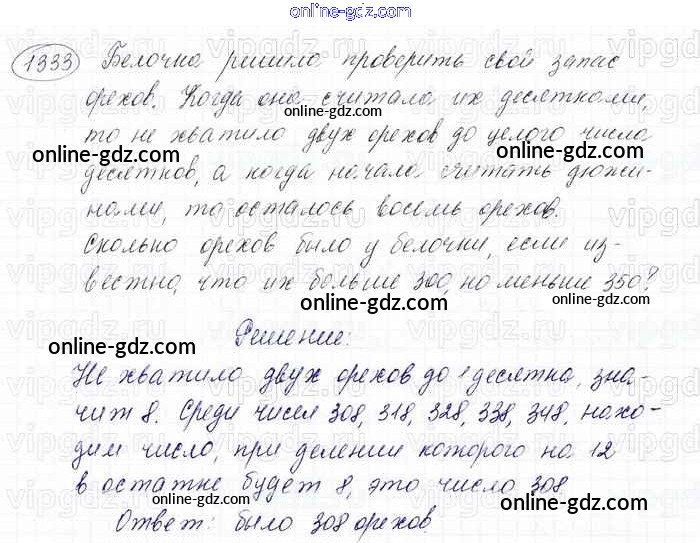 online-gdz.com
1333 Белочка решила проверить свой запас
орехов. Когда она считала их десятками,
то не хватило двух орехов до целого числа
десятков, а когда начала считать дюжи-
нами, то осталось восемь орехов.
Сколько орехов было у белочки, если из-
вестно, что их больше 300, но меньше 350?
Решение:
Не хватило двух орехов до 1 десятка, зна-
чит 8. Среди чисел 308, 318, 328, 338, 348, нахо-
дим число, при делении которого на 12
в остатке будет 8, это число 308
Ответ: было 308 орехов.